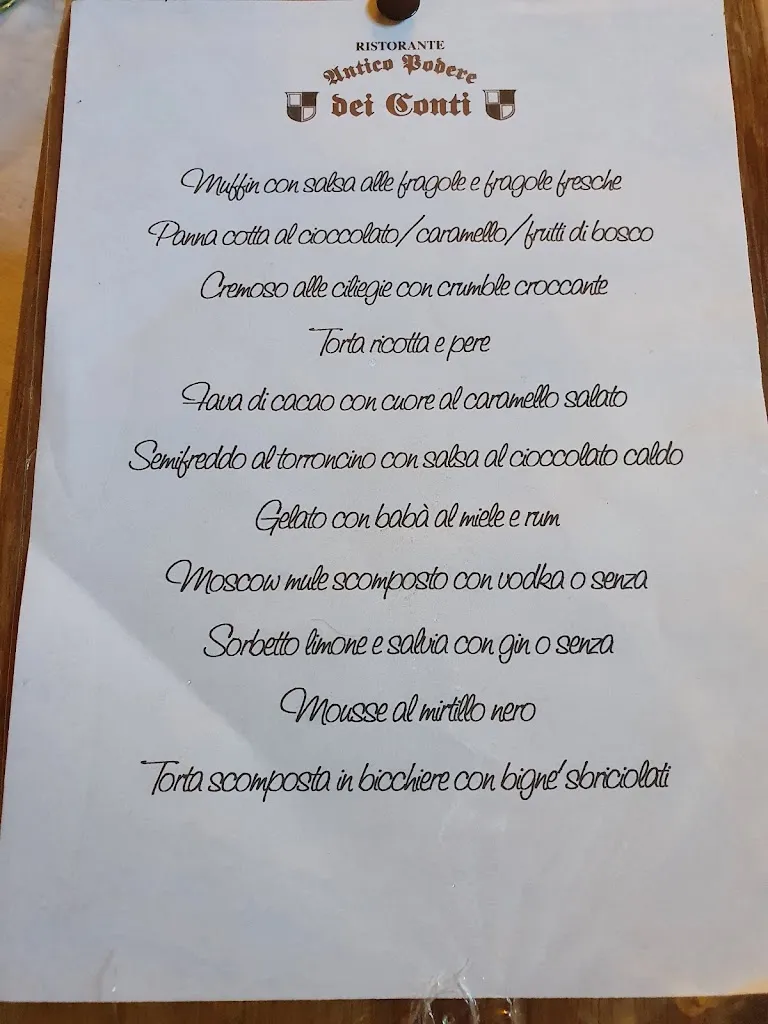 RISTORANTE
Antico Podere
dei Conti
Muffin con salsa alle fragole e fragole fresche
Panna cotta al cioccolato/caramello/frutti di bosco
Cremoso alle ciliegie con crumble croccante
Torta ricotta e pere
Fava di cacao con cuore al caramello salato
Semifreddo al torroncino con salsa al cioccolato caldo
Gelato con babà al miele e rum
Moscow mule scomposto con vodka o senza
Sorbetto limone e salvia con gin o senza
Mousse al mirtillo nero
Torta scomposta in bicchiere con bigne' sbriciolati